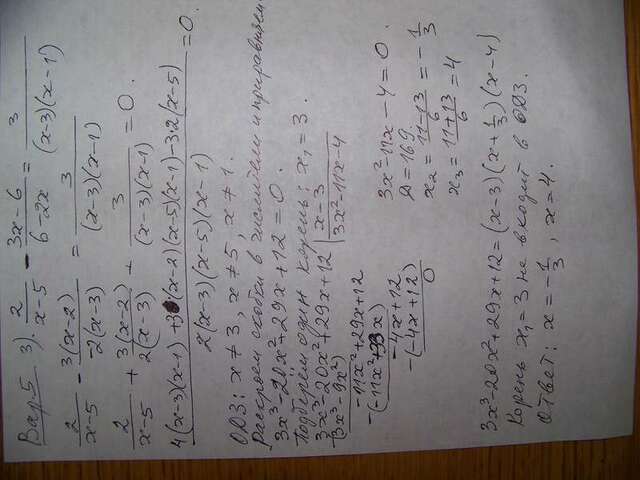 Вар 5 3) 2/(x-5) - (3x-6)/(6-2x) = 3/((x-3)(x-1))
2/(x-5) - 3(x-2)/(-2(x-3)) = 3/((x-3)(x-1))
2/(x-5) + 3(x-2)/(2(x-3)) + 3/((x-3)(x-1)) = 0.
(4(x-3)(x-1) + 3·(x-2)(x-5)(x-1) - 3·2(x-5))/(2(x-3)(x-5)(x-1)) = 0.
ОДЗ: x ≠ 3, x ≠ 5, x ≠ 1.
Раскроем скобки в числителе и приравняем
3x³-20x²+29x+12 = 0.
Подберём один корень: x₁ = 3.
3x³-20x²+29x+12 | x-3
-(3x³-9x²) | 3x²-11x-4
-11x²+29x+12
-(-11x²+33x)
-4x+12
-(-4x+12)
0
3x²-11x-4=0.
D=169.
x₂ = (11-13)/6 = -1/3
x₃ = (11+13)/6 = 4
3x³-20x²+29x+12=(x-3)(x+1/3)(x-4)
Корень x₁=3 не входит в ОДЗ.
Ответ: x = -1/3, x = 4.